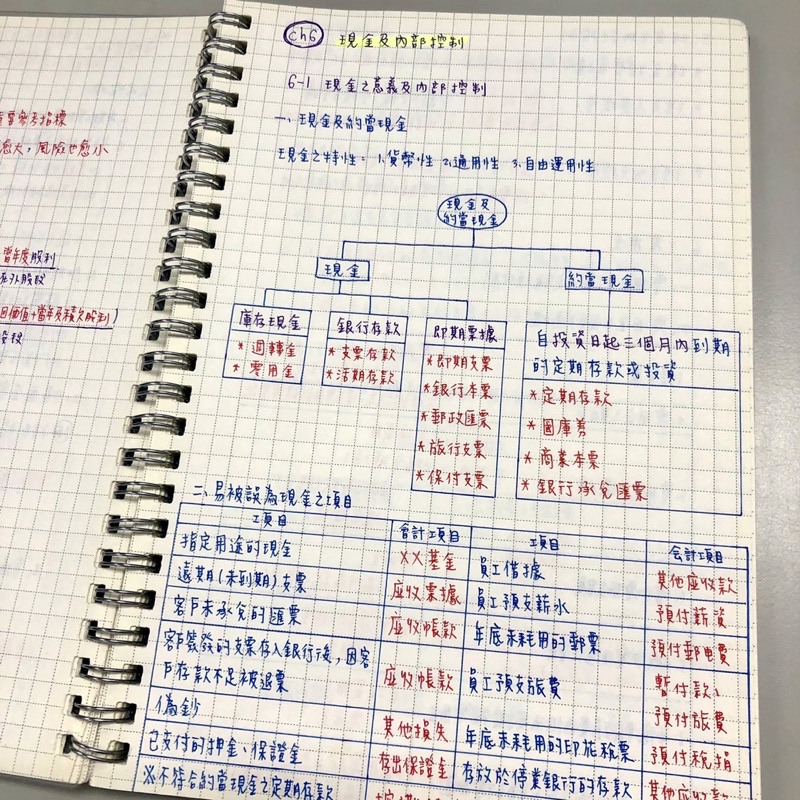 参考指標
愈大，風險也愈小
當年度股利
在外股數
價值+當年及積欠股利)
股數
ch6 現金及內部控制
6-1 現金之意義及內部控制
一、現金及約當現金
現金之特性: 1.貨幣性 2.通用性 3.自由運用性
現金及
約當現金
現金
約當現金
庫存現金
*週轉金
*零用金
銀行存款
*支票存款
*活期存款
即期票據
*即期支票
*銀行本票
*郵政匯票
*旅行支票
*保付支票
自投資日起三個月內到期
的定期存款或投資
*定期存款
*國庫券
*商業本票
*銀行承兌匯票
二、易被誤為現金之項目
項目 會計項目 項目 会計項目
指定用途的現金 XX基金 員工借據 其他应收款
遠期(未到期)支票 应收票據 員工預支薪水 預付薪資
客戶未承兌的匯票 应收帳款 年底未耗用的郵票 預付郵電費
客戶簽發的支票存入銀行後，因客
戶存款不足被退票 应收帳款 員工預支旅費 暫付款、
預付旅費
偽鈔 其他損失 年底未耗用的印花稅票 預付稅捐
已交付的押金、保證金 存出保證金 存放於停業銀行的存款 其他应收款
※不符合約當現金之定期存款